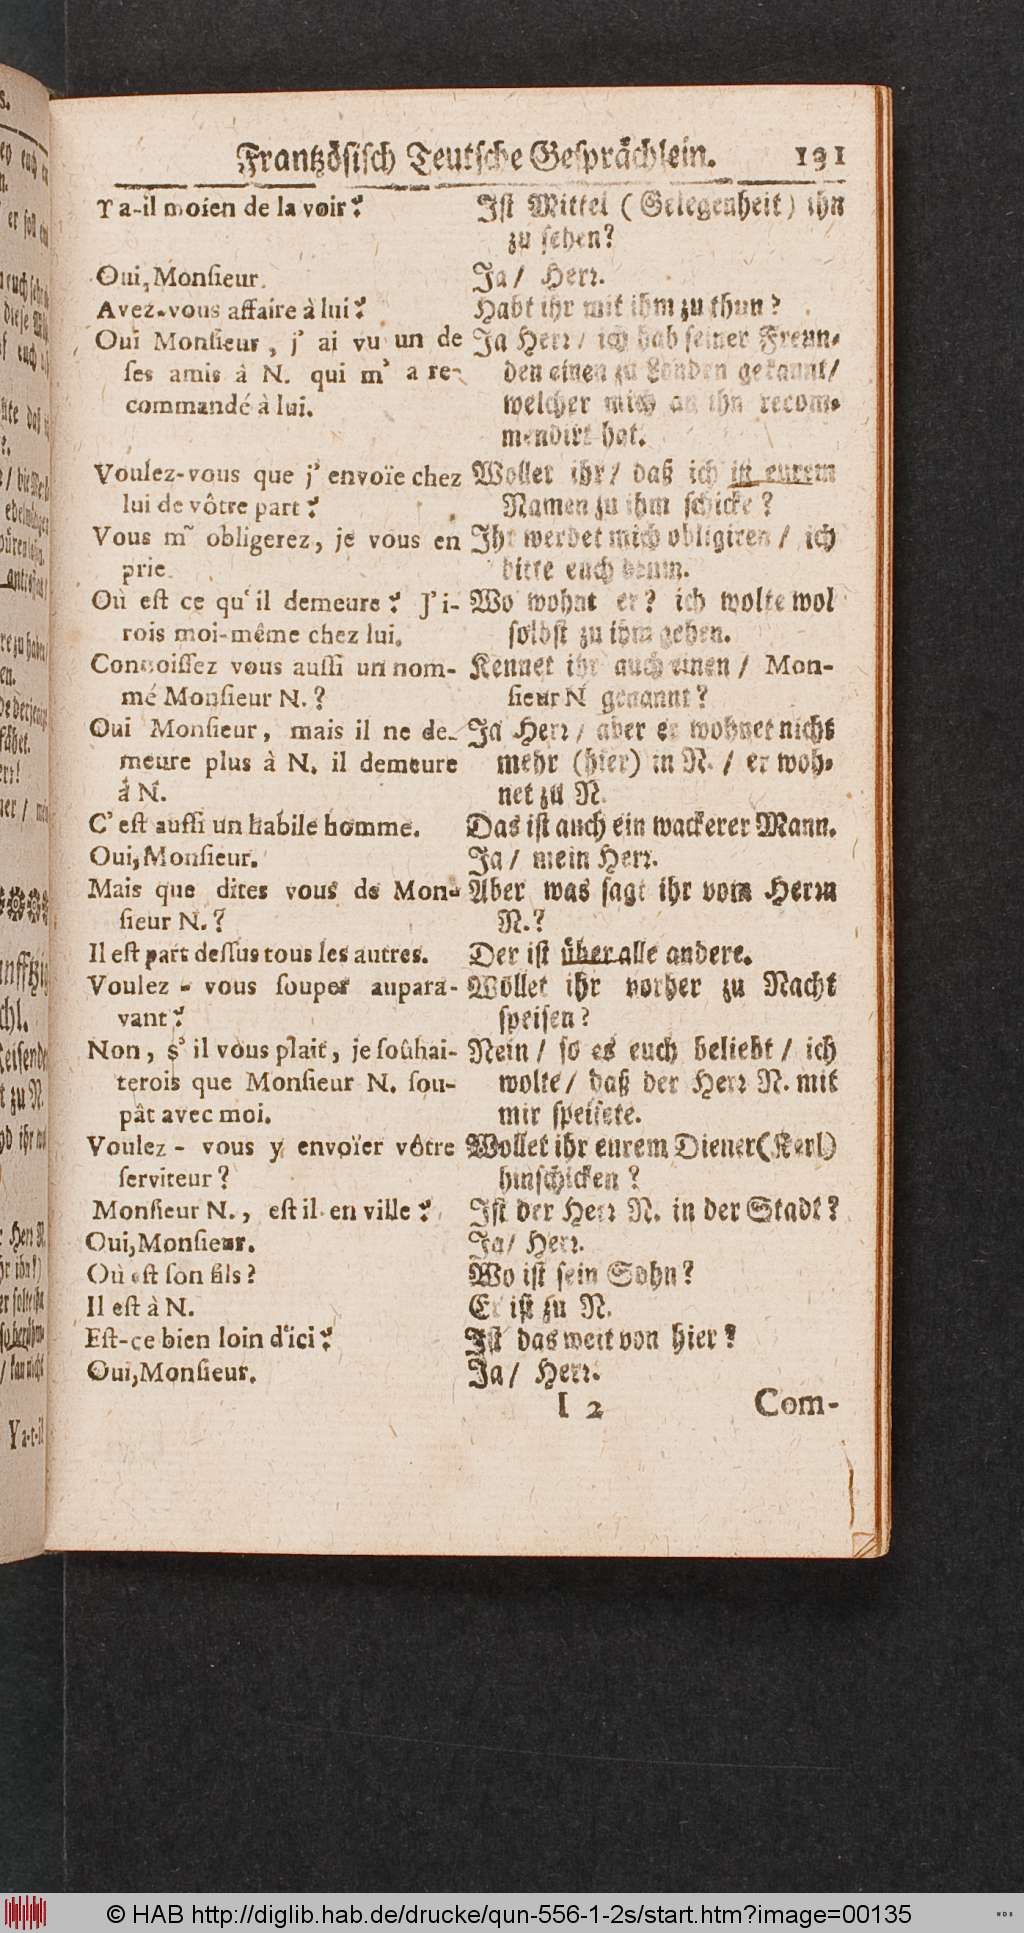 Frantzösisch Teutsche Gesprächlein. 131
Y a-il moien de la voir?
Oui, Monsieur.
Avez-vous affaire à lui?
Oui Monsieur, j' ai vu un de
ses amis à N. qui m' a re-
commandé à lui.
Voulez-vous que j' envoïe chez
lui de vôtre part?
Vous m' obligerez, je vous en
prie.
Où est ce qu' il demeure? J' i-
rois moi-même chez lui.
Connoissez vous aussi un nom-
mé Monsieur N.?
Oui Monsieur, mais il ne de-
meure plus à N. il demeure
à N.
C' est aussi un habile homme.
Oui, Monsieur.
Mais que dites vous de Mon-
sieur N.?
Il est part dessus tous les autres.
Voulez - vous souper aupara-
vant?
Non, s' il vous plait, je soûhai-
terois que Monsieur N. sou-
pât avec moi.
Voulez - vous y envoïer vôtre
serviteur?
Monsieur N., est il en ville?
Oui, Monsieur.
Où est son fils?
Il est à N.
Est-ce bien loin d'ici?
Oui, Monsieur.
Ist Mittel (Gelegenheit) ihn
zu sehen?
Ja / Herr.
Habt ihr mit ihm zu thun?
Ja Herr / ich hab seiner Freun-
den einen zu Londen gekannt /
welcher mich an ihn recom-
mendirt hat.
Wollet ihr / daß ich in eurem
Namen zu ihm schicke?
Ihr werdet mich obligiren / ich
bitte euch drum.
Wo wohnt er? ich wolte wol
selbst zu ihm gehen.
Kennet ihr auch einen / Mon-
sieur N genannt?
Ja Herr / aber er wohnet nicht
mehr (hier) in N. / er woh-
net zu N.
Das ist auch ein wackerer Mann.
Ja / mein Herr.
Aber was sagt ihr vom Herrn
N.?
Der ist über alle andere.
Wöllet ihr vorher zu Nacht
speisen?
Nein / so es euch beliebt / ich
wolte / daß der Herr N. mit
mir speisete.
Wollet ihr eurem Diener (Kerl)
hinschicken?
Ist der Herr N. in der Stadt?
Ja / Herr.
Wo ist sein Sohn?
Er ist zu N.
Ist das weit von hier?
Ja / Herr.
I 2 Com-
Y a-t-il
© HAB http://diglib.hab.de/drucke/qun-556-1-2s/start.htm?image=00135